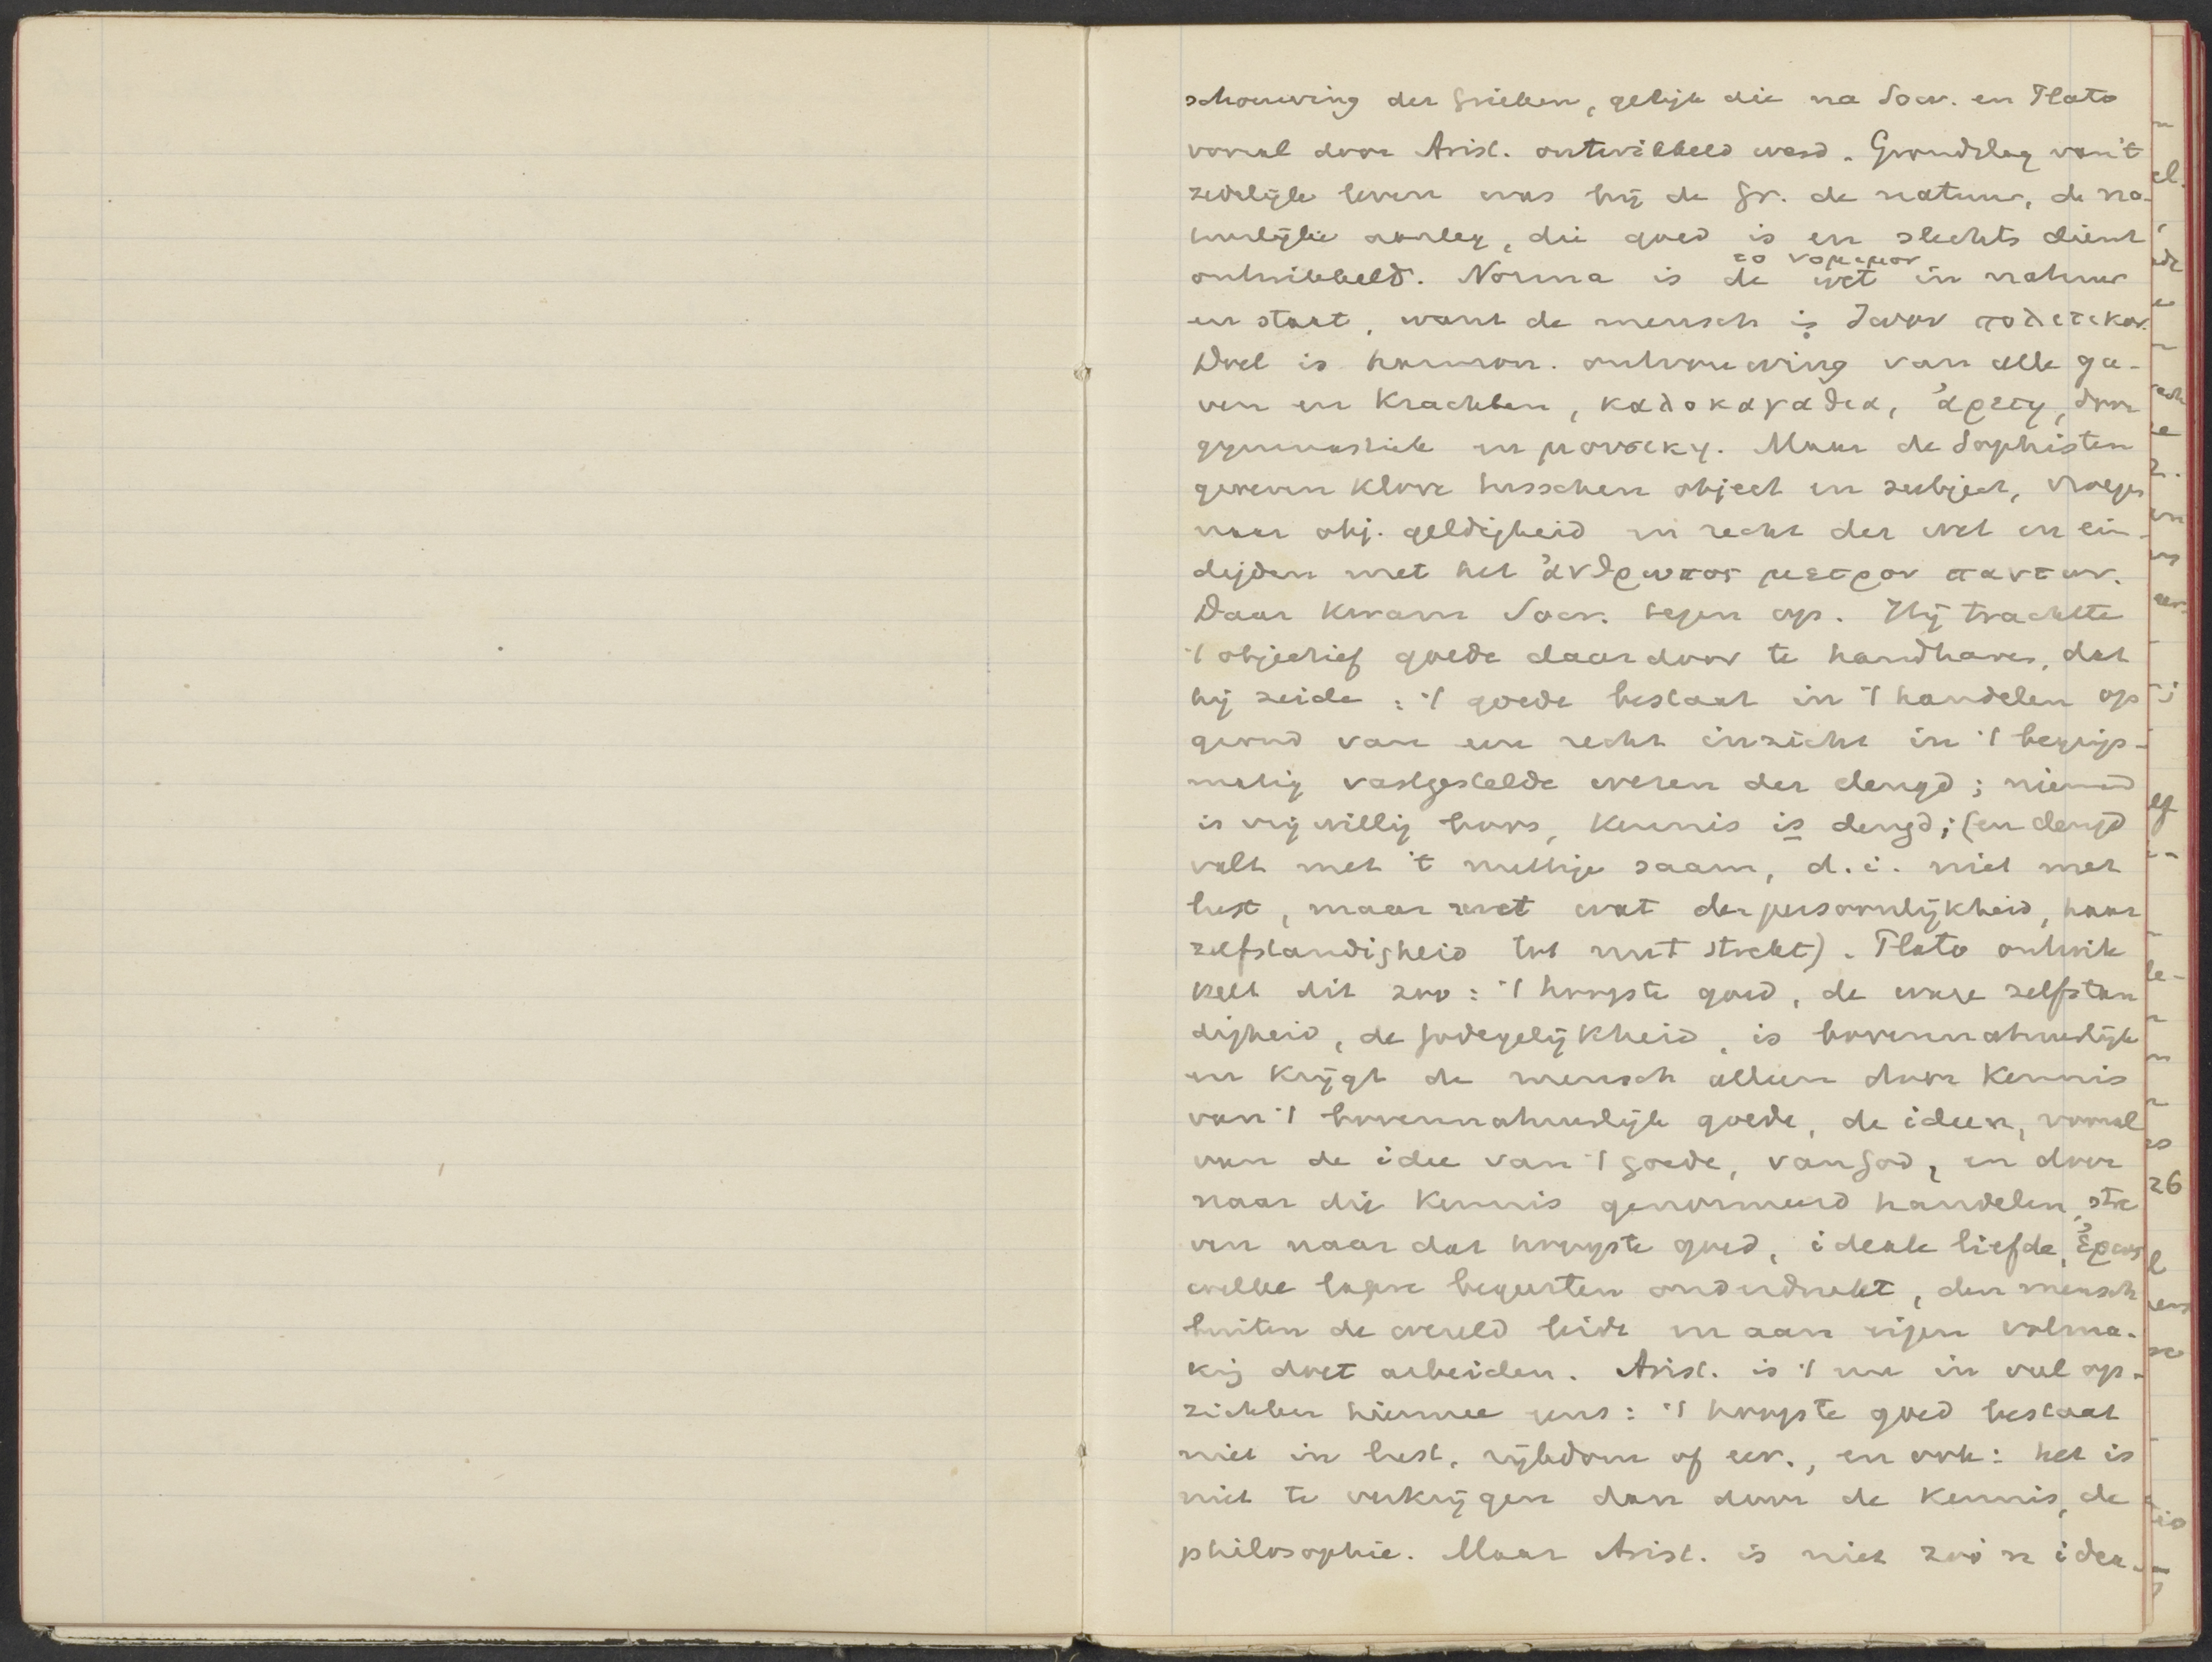 schouwing der Grieken, gelijk die na Socr. en Plato
vooral door Arist. ontwikkeld werd. Grondslag van 't
zedelijke leven was bij de Gr. de natuur, de na-
tuurlijke aanleg, die goed is en slechts dient
ontwikkeld. Norma is de wet in natuur
το νομιμον
en staat, want de mensch is ζωον πολιτικον.
Doel is harmon. ontvouwing van alle ga-
ven en krachten, καλοκαγαθια, ἀρετη, door
gymnastiek en μουσικη. Maar de Sophisten
groeven kloof tusschen object en subject, vroegen
naar obj. geldigheid en recht der wet en ein-
digden met het ἀνθρωπος μετρον παντων.
Daar kwam Socr. tegen op. Hij trachtte
't objectief goede daardoor te handhaven, dat
hij zeide: 't goede bestaat in 't handelen op
grond van een recht inzicht in 't begrips-
matig vastgestelde wezen der deugd; niemand
is vrijwillig boos, kennis is deugd; (en deugd
valt met 't nuttige saam, d.i. niet met
lust, maar met wat der persoonlijkheid, haar
zelfstandigheid tot nut strekt). Plato ontwik
kelt dit zoo: 't hoogste goed, de ware zelfstan
digheid, de godegelijkheid, is bovennatuurlijk
en krijgt de mensch alleen door kennis
van 't bovennatuurlijk goede, de ideen, vooral
van de idee van 't goede, van God, en door
naar die kennis genormeerd handelen, stre
ven naar dat hoogste goed, ideale liefde, ἐρως
welke lagere begeerten onderdrukt, den mensch
buiten de wereld leidt en aan eigen volma-
king doet arbeiden. Arist. is 't nu in veel op-
zichten hiermee eens: 't hoogste goed bestaat
niet in lust, rijkdom of eer., en ook: het is
niet te verkrijgen dan door de kennis, de
philosophie. Maar Arist. is niet zoo'n idea-